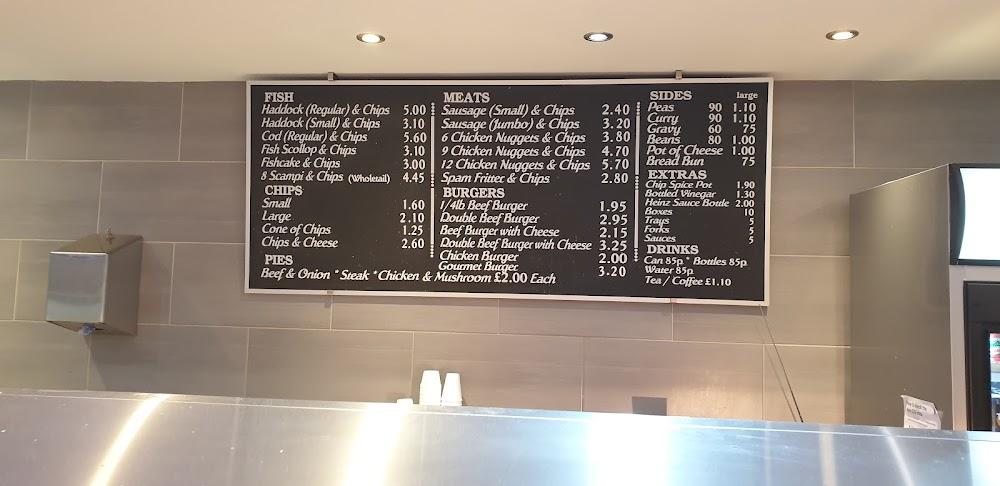 FISH
Haddock (Regular) & Chips 5.00
Haddock (Small) & Chips 3.10
Cod (Regular) & Chips 5.60
Fish Scollop & Chips 3.10
Fishcake & Chips 3.00
8 Scampi & Chips (Wholetail) 4.45
CHIPS
Small 1.60
Large 2.10
Cone of Chips 1.25
Chips & Cheese 2.60
PIES
Beef & Onion * Steak * Chicken & Mushroom £2.00 Each
MEATS
Sausage (Small) & Chips 2.40
Sausage (Jumbo) & Chips 3.20
6 Chicken Nuggets & Chips 3.80
9 Chicken Nuggets & Chips 4.70
12 Chicken Nuggets & Chips 5.70
Spam Fritter & Chips 2.80
BURGERS
1/4lb Beef Burger 1.95
Double Beef Burger 2.95
Beef Burger with Cheese 2.15
Double Beef Burger with Cheese 3.25
Chicken Burger 2.00
Gourmet Burger 3.20
SIDES large
Peas 90 1.10
Curry 90 1.10
Gravy 60 75
Beans 80 1.00
Pot of Cheese 1.00
Bread Bun 75
EXTRAS
Chip Spice Pot 1.90
Bottled Vinegar 1.30
Heinz Sauce Bottle 2.00
Boxes 10
Trays 5
Forks 5
Sauces 5
DRINKS
Can 85p * Bottles 85p
Water 85p
Tea / Coffee £1.10